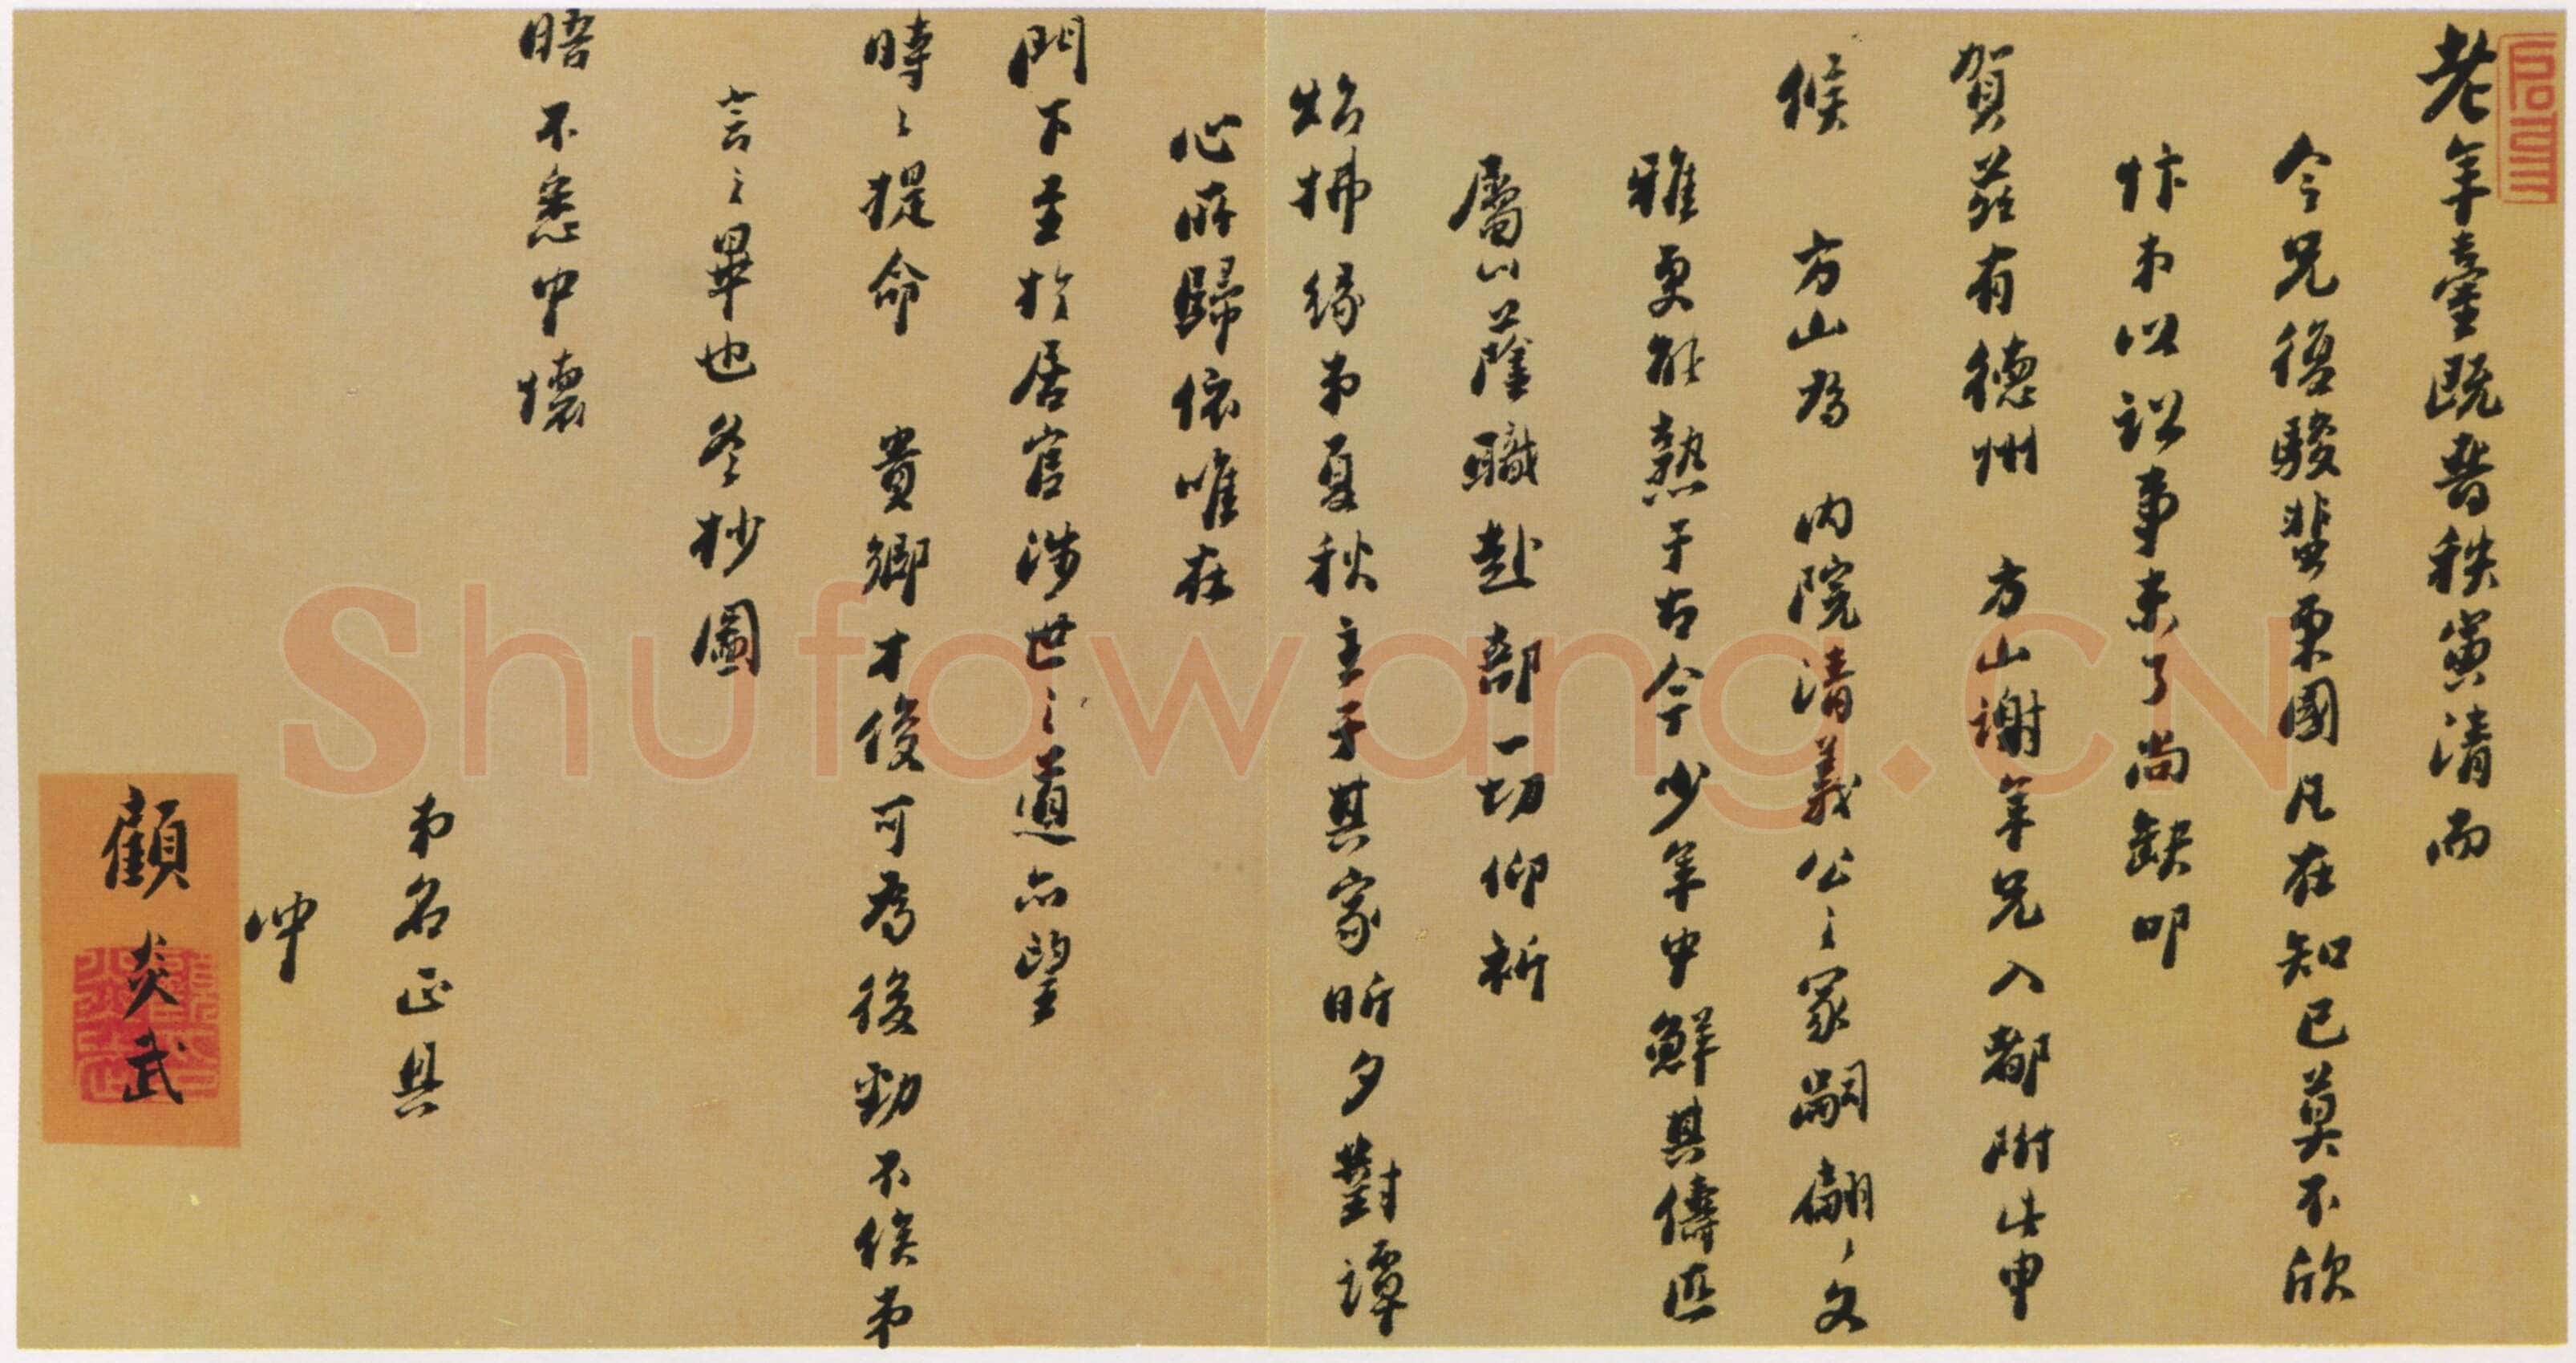 老年臺既晉秩寅清而
令兄復駿蜚栗國凡在知已莫不欣
忭弟以訟事未了尚缺叩
賀茲有德州 方山謝年兄入都附此申
候 方山為 内院清義公之冢嗣翩々文
雅更能熟于古今少年中鮮其儔匹
屬以蔭職赴部一切仰祈
炤拂緣弟夏秋主于其家昕夕對譚
心所歸依唯在
門下至於居官涉世之道亦望
時々提命 貴鄉才俊可為後勁不俟弟
言之畢也冬抄圖
晤不悉中懷
弟名正具
冲
顧炎武
Shufawang.CN